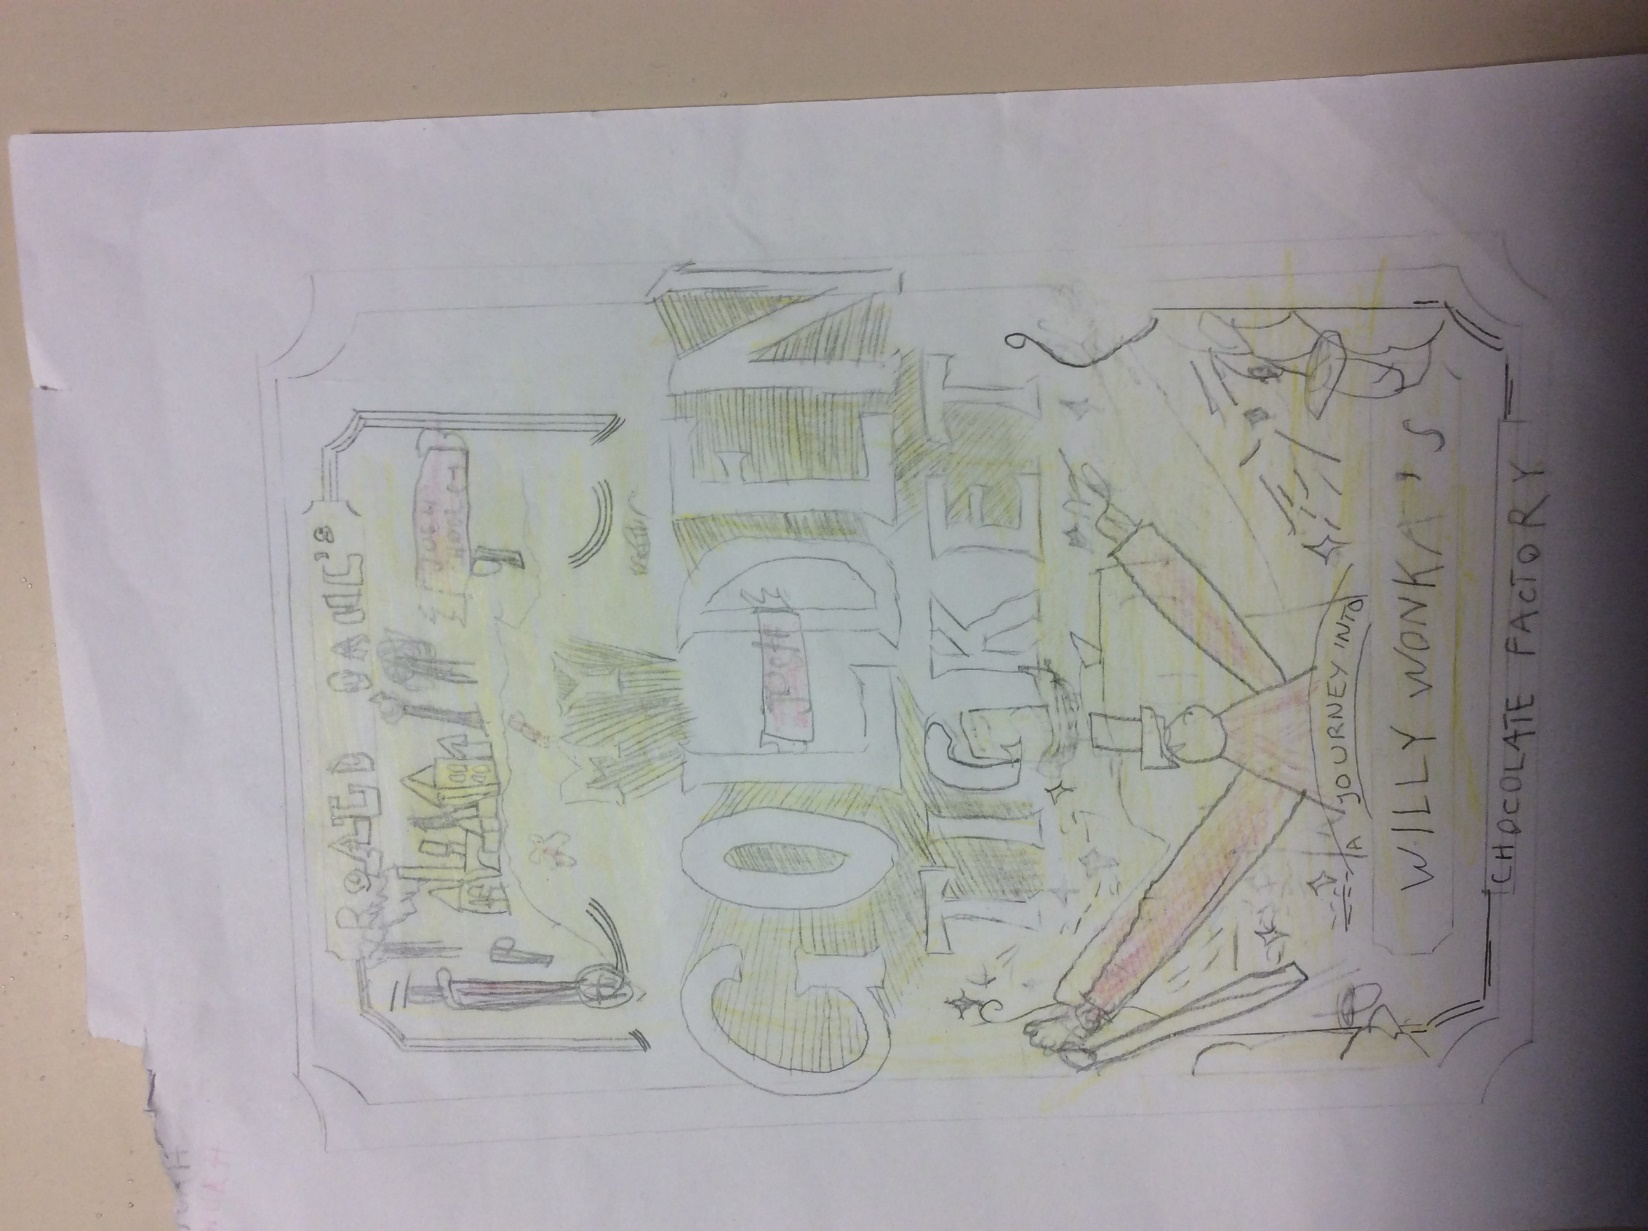 ROALD DAHL'S
GOLDEN
JOSH
TICKET
A JOURNEY INTO
WILLY WONKA'S
CHOCOLATE FACTORY